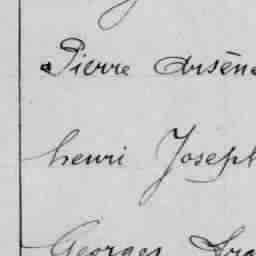 Pierre Arsène
henri Joseph
Georges